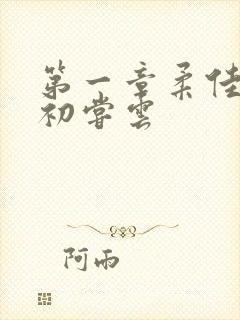 第一章柔佳
初尝雲
阿雨